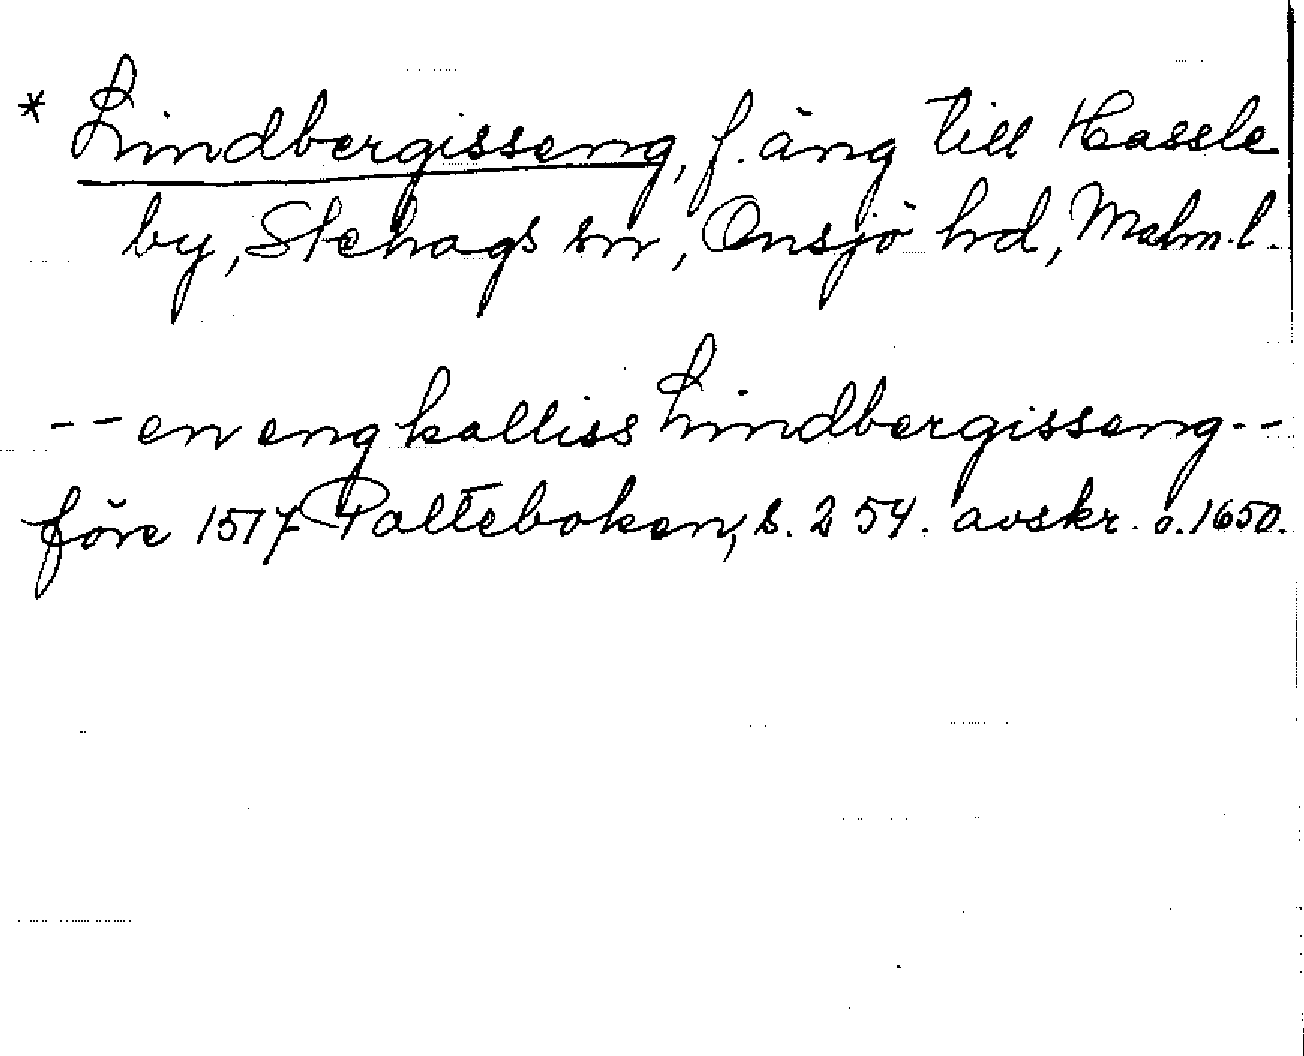 * Lindbergisseng, f. äng till Hassle
by, Stehags sn, Onsjö hd, Malm.l.
-- en eng kalliss Lindbergisseng --
före 1517 Palteboken, s. 254. avskr. o. 1650.